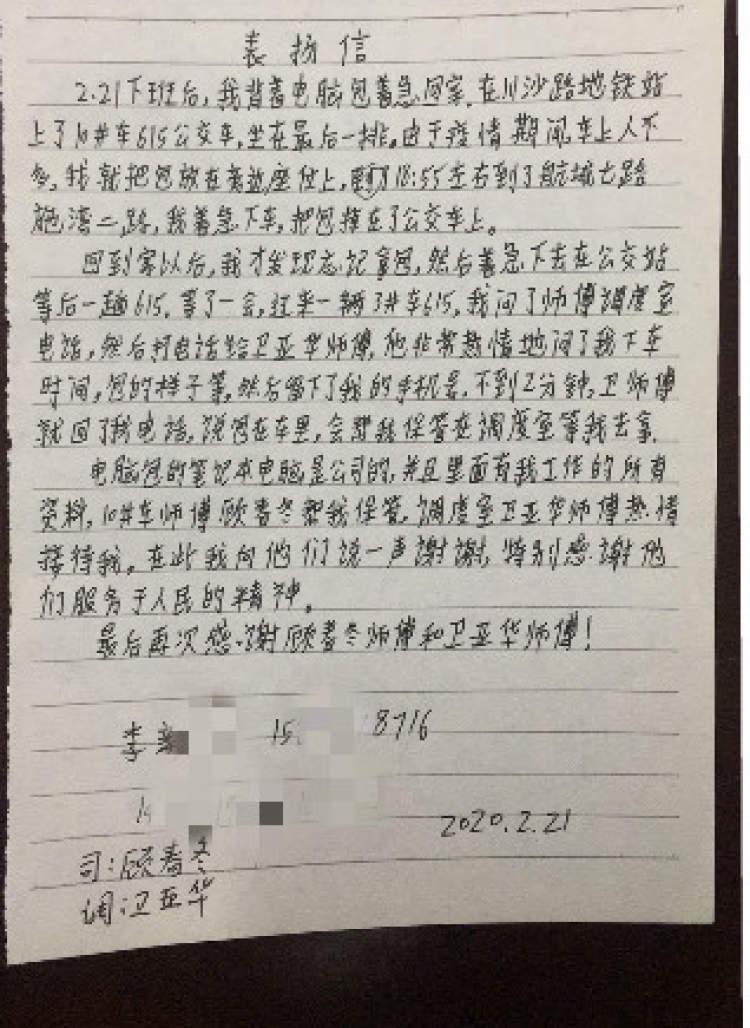 表扬信
2.21下班后，我背着电脑包着急回家，在川沙路地铁站
上了10#车615公交车，坐在最后一排。由于疫情期间，车上人不
多，我就把包放在旁边座位上，到了18:55左右到了航城七路
施湾二路，我着急下车，把包掉在了公交车上。
回到家以后，我才发现忘记拿包，然后着急下去在公交站
等后一趟615，等了一会，过来一辆3#车615，我问了师傅调度室
电话，然后打电话给卫亚华师傅，他非常热情地问了我下车
时间，包的样子等，然后留下了我的手机号，不到2分钟，卫师傅
就回了我电话，说包在车里，会帮我保管在调度室等我去拿。
电脑包的笔记本电脑是公司的，并且里面有我工作的所有
资料，10#车师傅顾春冬帮我保管，调度室卫亚华师傅热情
接待我。在此我向他们说一声谢谢，特别感谢他
们服务于人民的精神。
最后再次感谢顾春冬师傅和卫亚华师傅！
李 15 8716
2020.2.21
司：顾春冬
调：卫亚华